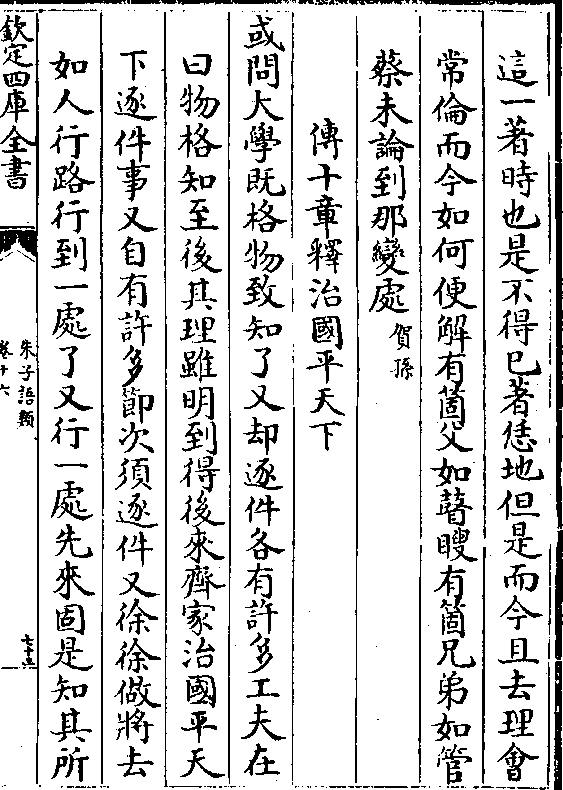 這一著時也是不得已著恁地但是而今且去理會
常倫而今如何便解有箇父如瞽瞍有箇兄弟如管
蔡未論到那變處賀孫
傳十章釋治國平天下
或問大學既格物致知了又却逐件各有許多工夫在
曰物格知至後其理雖明到得後來齊家治國平天
下逐件事又自有許多節次須逐件又徐徐做將去
如人行路行到一處了又行一處先來固是知其所
欽定四庫全書
朱子語類
卷十六